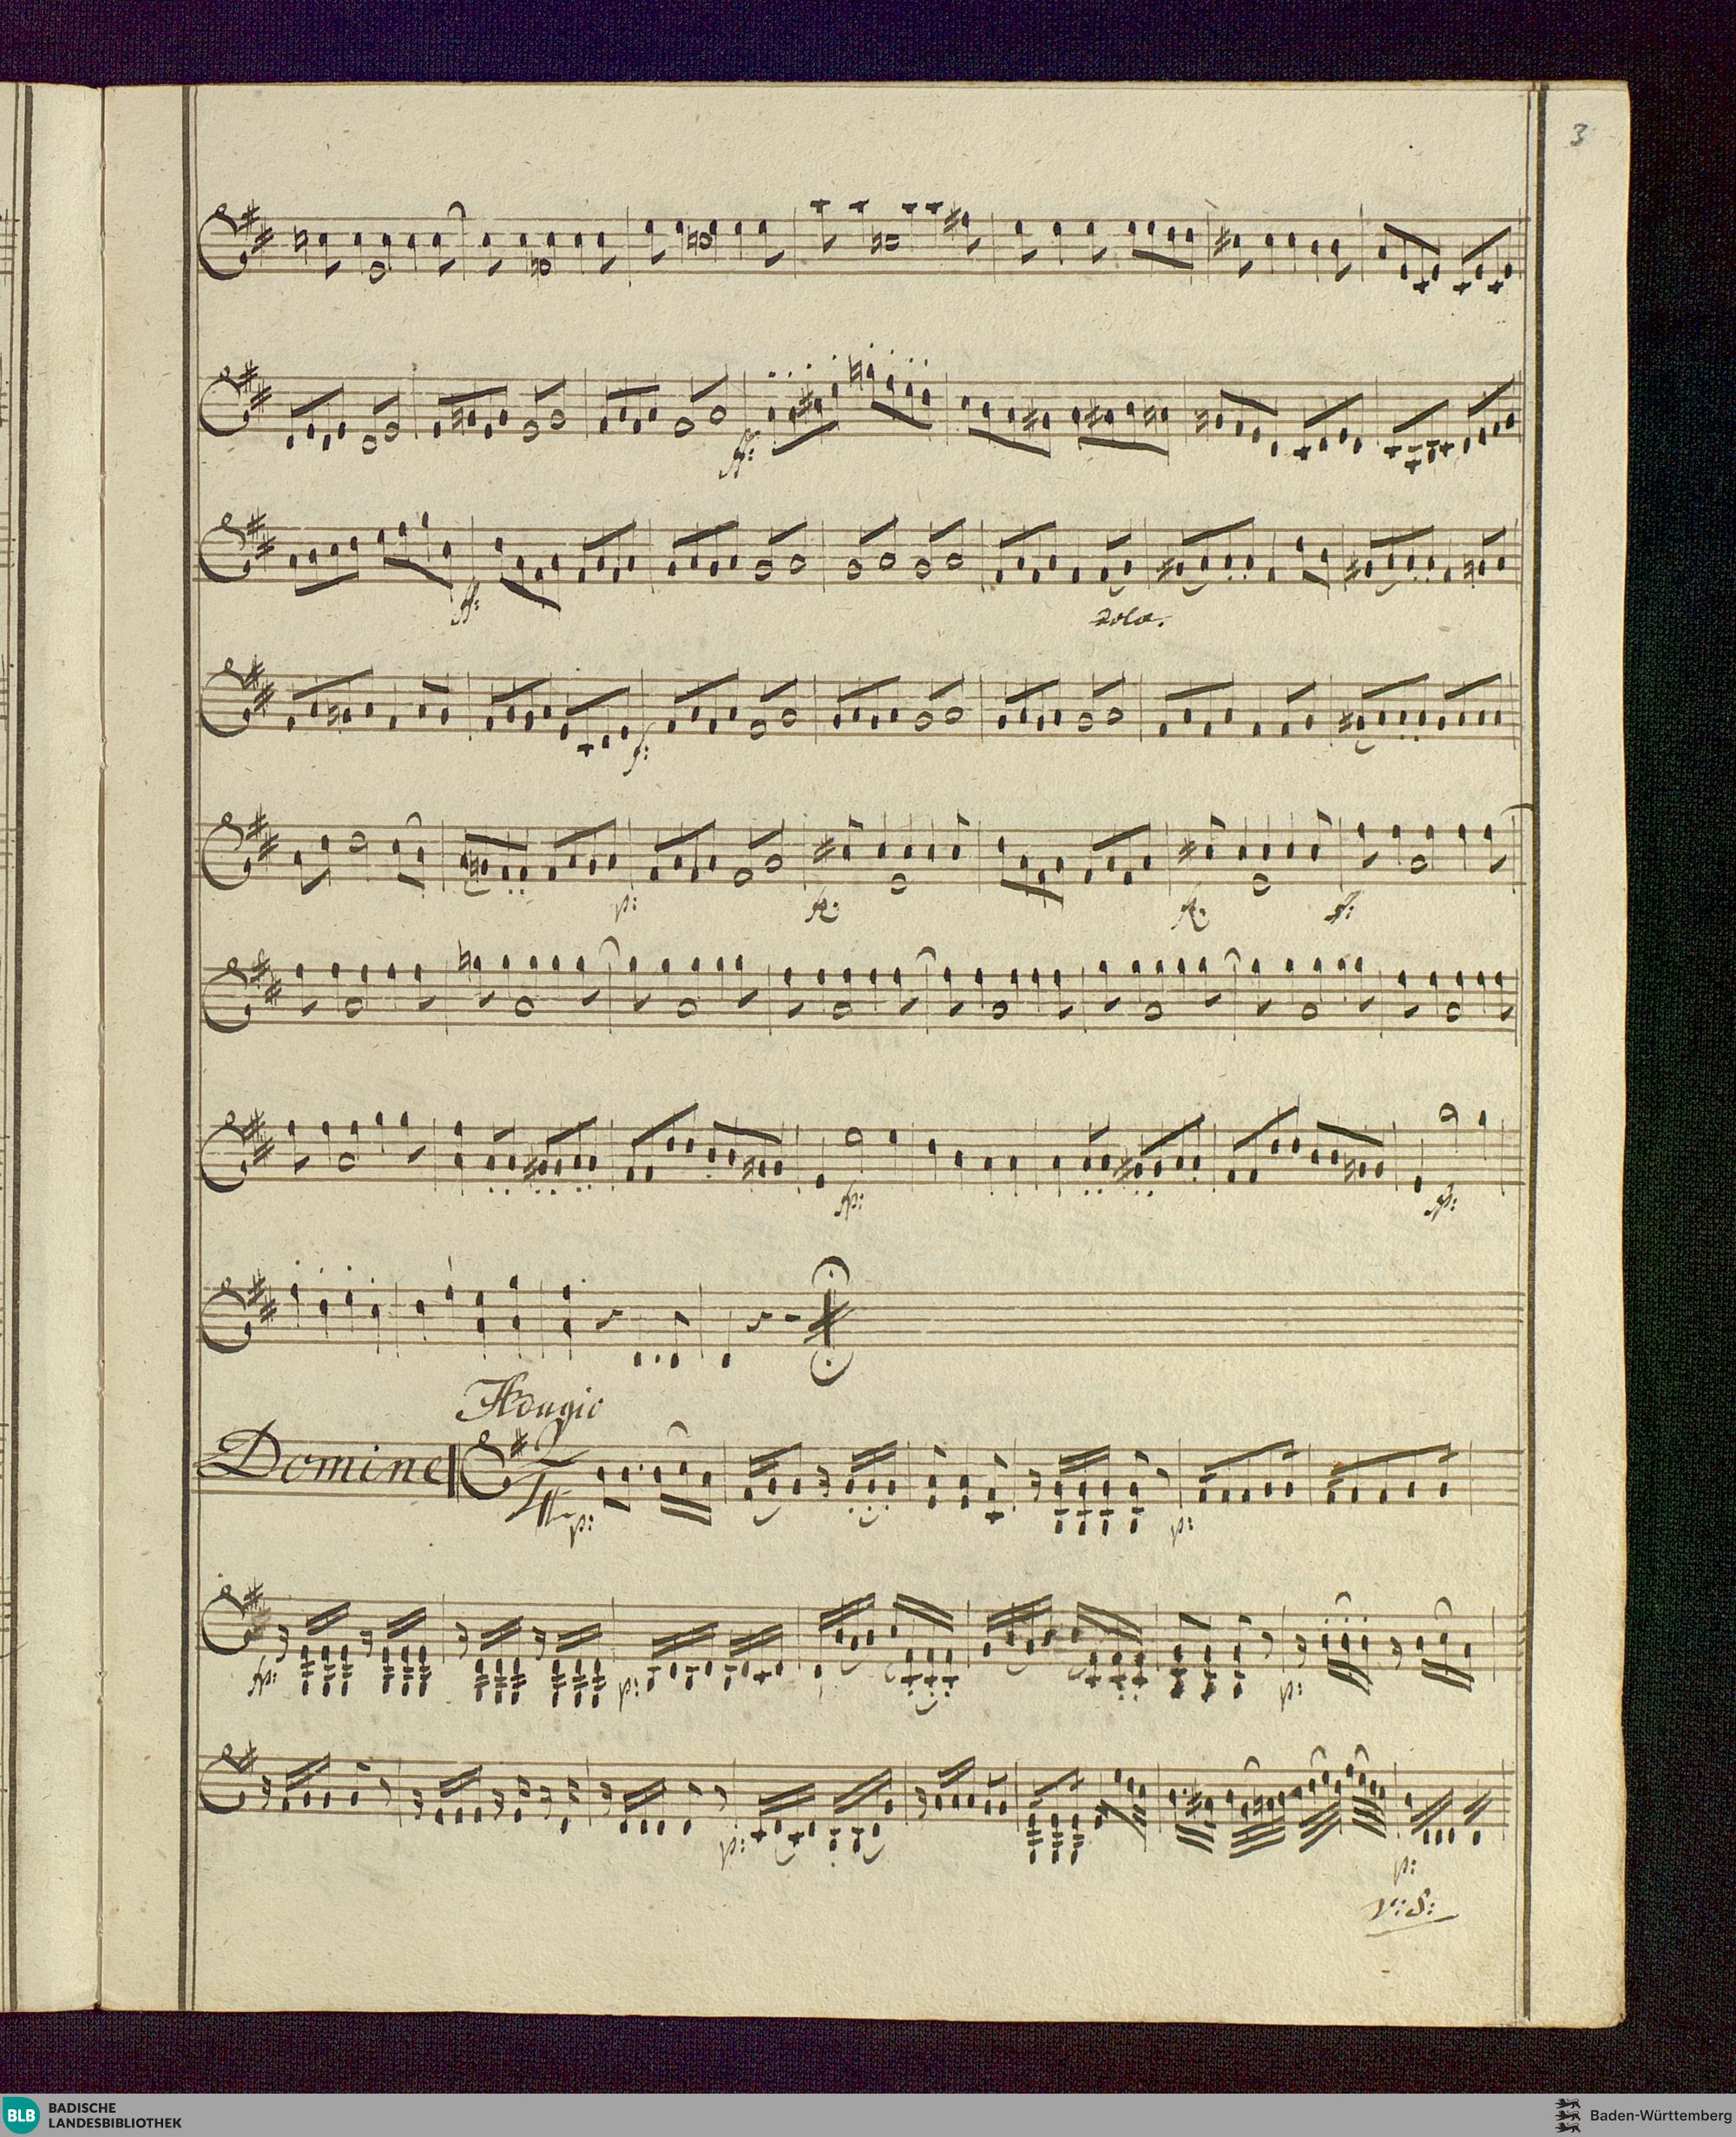 3
ff:
ff:
solo.
f:
p:
fp:
fp:
ff:
fp:
fp:
Adagio
Domine
2
4
p:
p:
fp:
p:
p:
p:
p:
V:S:
BLB
BADISCHE
LANDESBIBLIOTHEK
Baden-Württemberg